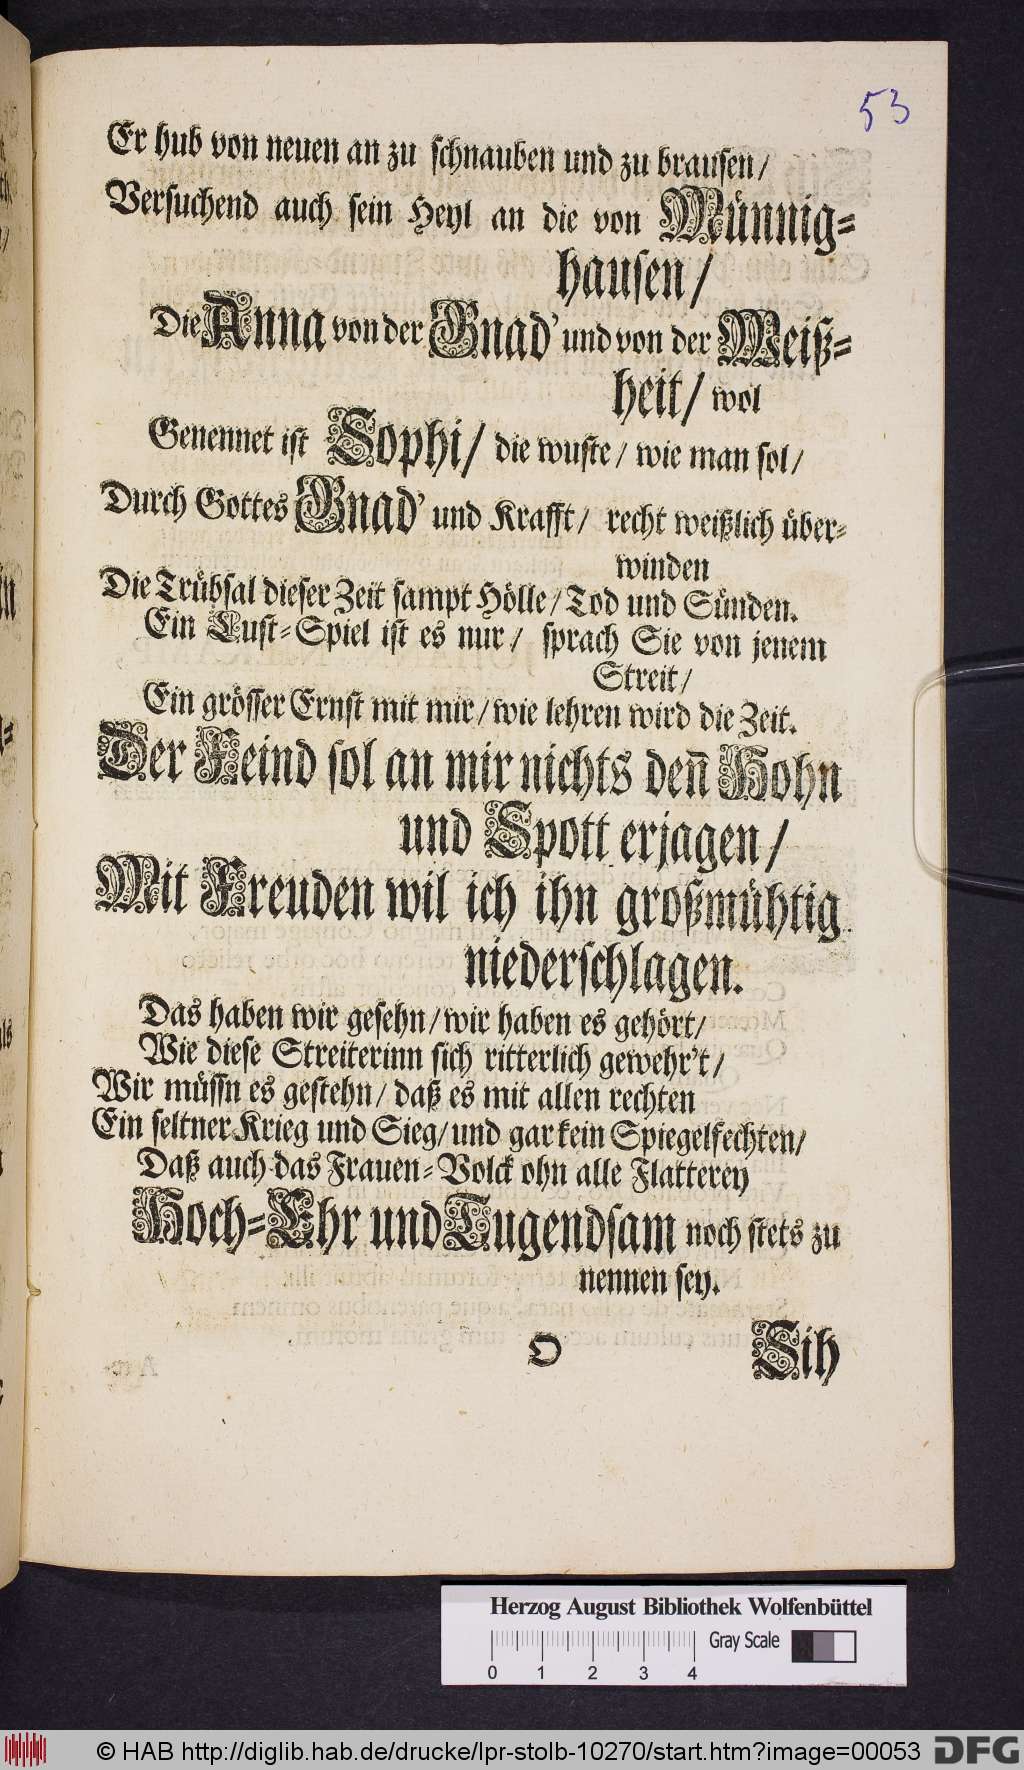 53
Er hub von neuen an zu schnauben und zu brausen/
Versuchend auch sein Heyl an die von Münnig-
hausen/
Die Anna von der Gnad' und von der Weiß-
heit/ wol
Genennet ist Sophi/ die wuste/ wie man sol/
Durch Gottes Gnad' und Krafft/ recht weißlich über-
winden
Die Trübsal dieser Zeit sampt Hölle/ Tod und Sünden.
Ein Lust-Spiel ist es nur/ sprach Sie von jenem
Streit/
Ein grösser Ernst mit mir/ wie lehren wird die Zeit.
Der Feind sol an mir nichts den̄ Hohn
und Spott erjagen/
Mit Freuden wil ich ihn großmühtig
niederschlagen.
Das haben wir gesehn/ wir haben es gehört/
Wie diese Streiterinn sich ritterlich gewehr't/
Wir müssn es gestehn/ daß es mit allen rechten
Ein seltner Krieg und Sieg/ und gar kein Spiegelfechten/
Daß auch das Frauen-Volck ohn alle Flatterey
Hoch-Ehr und Tugendsam noch stets zu
nennen sey.
O Sih
Herzog August Bibliothek Wolfenbüttel
Gray Scale
0 1 2 3 4
© HAB http://diglib.hab.de/drucke/lpr-stolb-10270/start.htm?image=00053 DFG